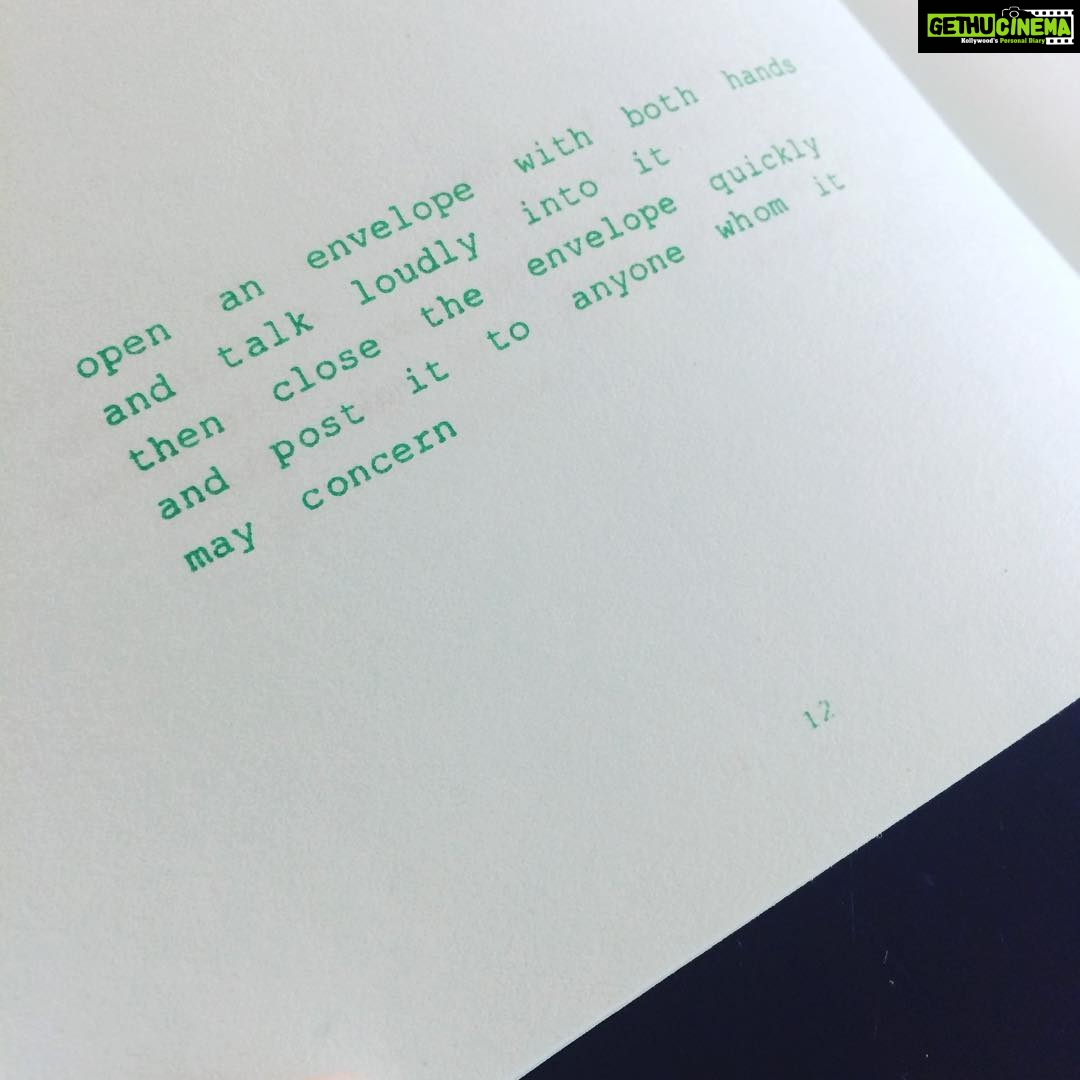 GETHUCINEMA
Kollywood's Personal Diary
open an envelope with both hands
and talk loudly into it
then close the envelope quickly
and post it to anyone whom it
may concern
12